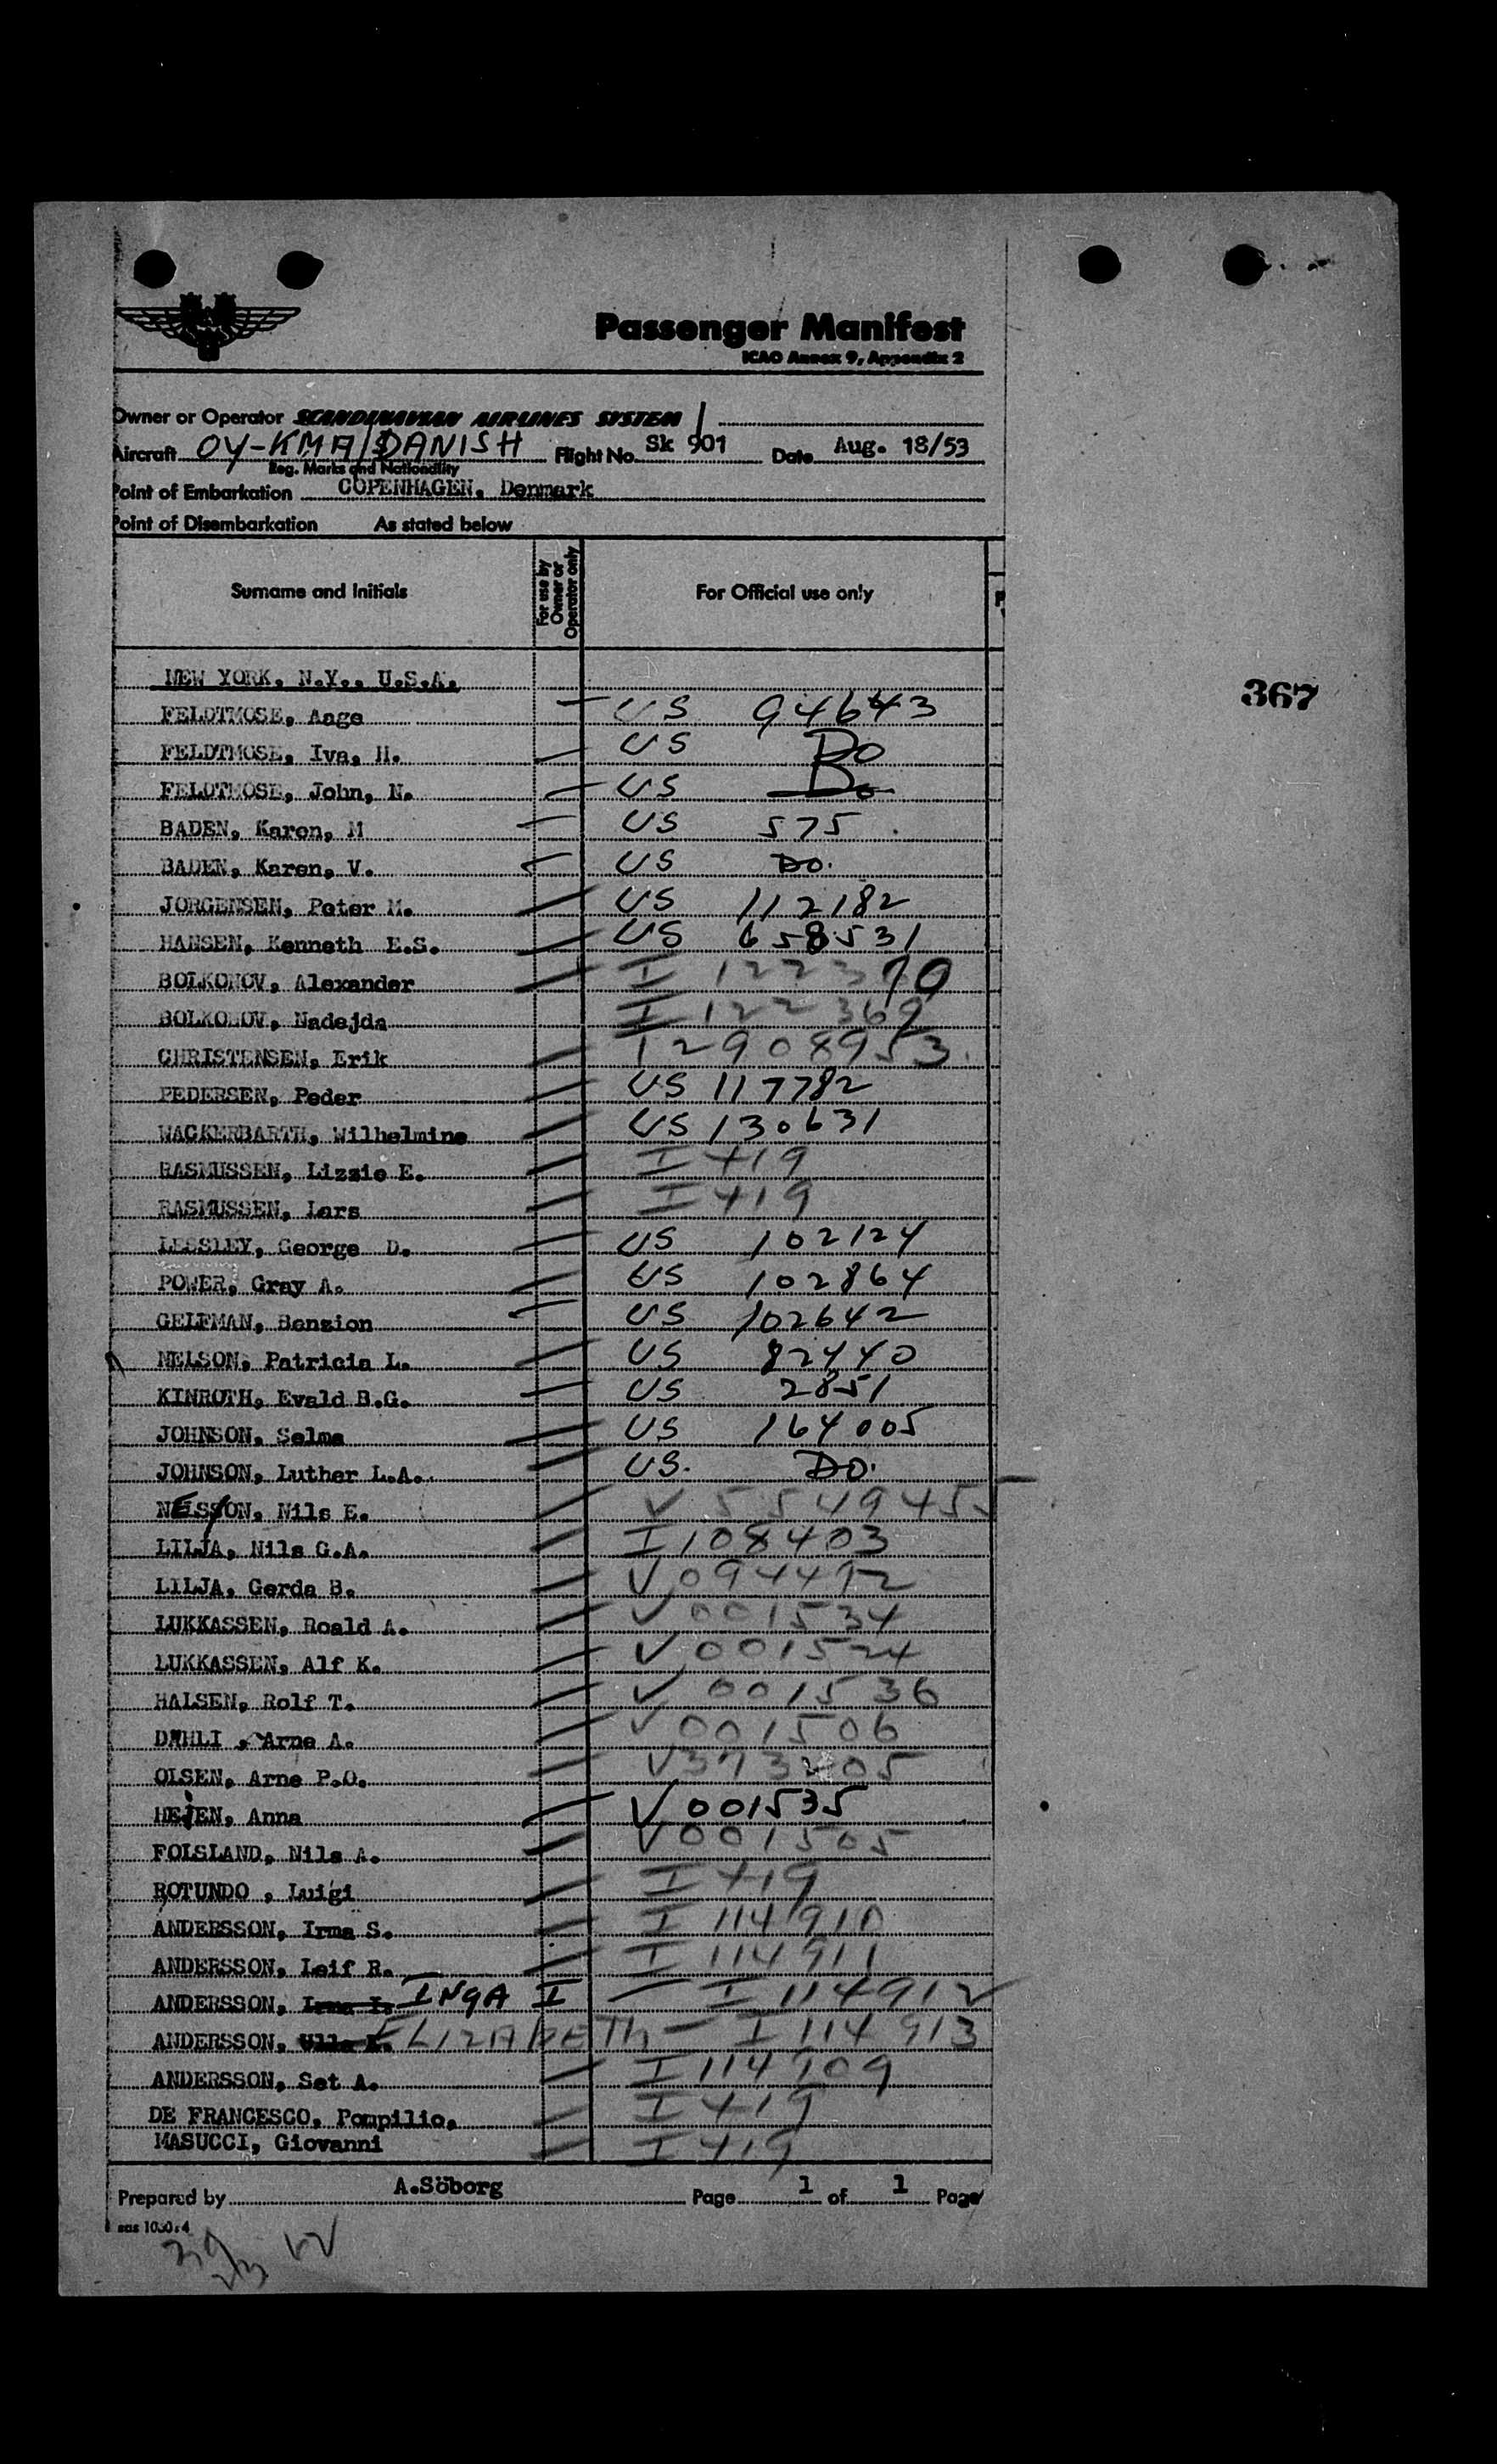 Passenger Manifest
ICAO Annex 9, Appendix 2
Owner or Operator SCANDINAVIAN AIRLINES SYSTEM
Aircraft OY-KMA/DANISH Flight No. Sk 901 Date Aug. 18/53
Reg. Marks and Nationality
Point of Embarkation COPENHAGEN, Denmark
Point of Disembarkation As stated below
Surname and Initials For use by Owner or Operator only For Official use only
NEW YORK, N.Y., U.S.A.
367
FELDTMOSE, Aage US 94643
FELDTMOSE, Iva, H. US Do
FELDTMOSE, John, N. US Do
BADEN, Karen, M US 575
BADEN, Karen, V. US Do.
JORGENSEN, Peter M. US 112182
HANSEN, Kenneth E.S. US 658531
BOLKONOV, Alexander I 122370
BOLKONOV, Nadejda I 122369
CHRISTENSEN, Erik T2908953
PEDERSEN, Peder US 117782
WACKERBARTH, Wilhelmine US 130631
RASMUSSEN, Lizzie E. I 419
RASMUSSEN, Lars I 419
LESSLEY, George D. US 102124
POWER, Gray A. US 102864
GELFMAN, Benzion US 102642
NELSON, Patricia L. US 82440
KINROTH, Evald B.G. US 2851
JOHNSON, Selma US 164005
JOHNSON, Luther L.A. US. Do.
Nils E. V 554945
LILJA, Nils G.A. I 108403
LILJA, Gerda B. V 094492
LUKKASSEN, Roald A. V 001534
LUKKASSEN, Alf K. V 001524
HALSEN, Rolf T. V 001536
DAHLI, Arne A. V 001506
OLSEN, Arne P.O. V373205
HEJEN, Anna V 001535
FOLSLAND, Nils A. V 001505
ROTUNDO , Luigi I 419
ANDERSSON, Irma S. I 114910
ANDERSSON, Leif R. I 114911
ANDERSSON, INgA I I 114912
ANDERSSON, ELIZABETH I 114913
ANDERSSON, Set A. I 114909
DE FRANCESCO, Pompilio, I 419
MASUCCI, Giovanni I 419
Prepared by A.Söborg Page 1 of 1 Page
sas 1030:4